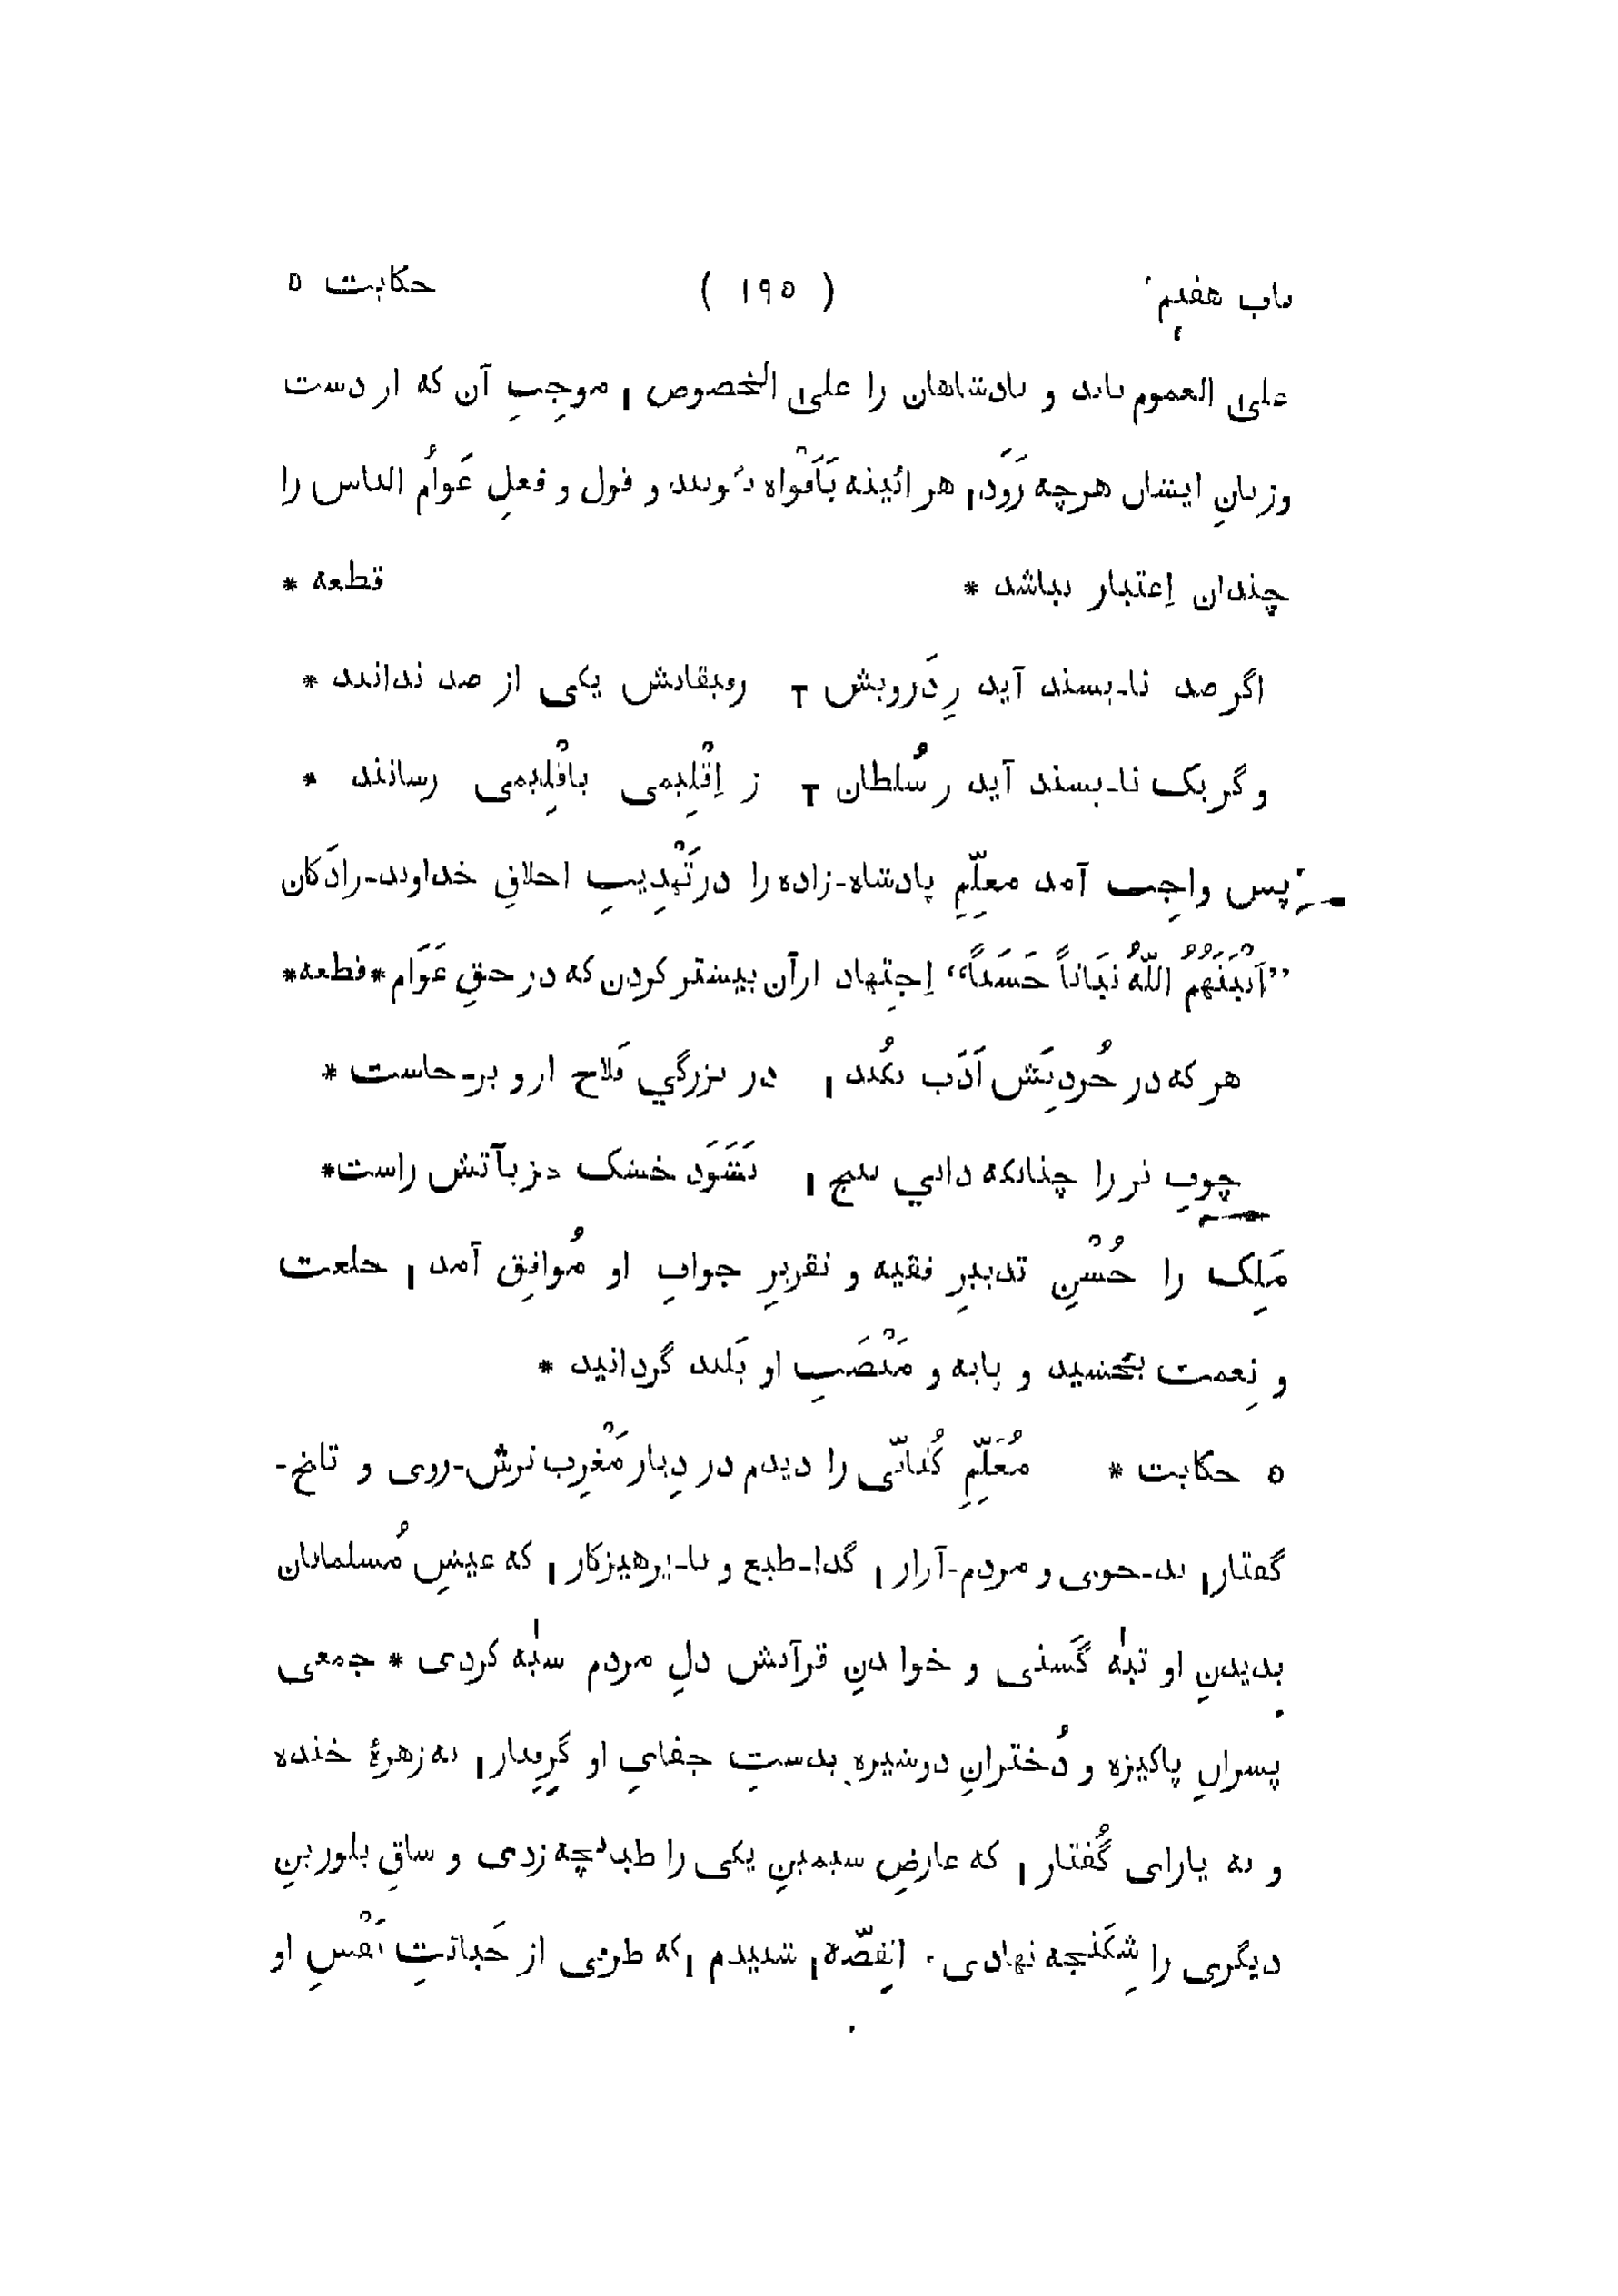 باب هفتم ( ۱۹۵ ) حکایت ۵
علی العموم باید و پادشاهان را علی الخصوص ا موجِبِ آن که از دست
وزبانِ ایشان هرچه رَوَد ا هر ائینه بَاَفْواه بگویند و قول و فعلِ عَوامُ الناس را
چندان اِعتبار نباشد * قطعه *
اگر صد نا-پسند آید زِدَرویش T رفیقانش یکی از صد ندانند *
وگر یک نا-پسند آید ز سُلطان T ز اِقْلِیمی باقْلِیمی رسانند *
پس واجِب آمد معلِّمِ پادشاه-زاده را درتَهْذِیبِ اخلاقِ خداوند-زادَگان
”اَنْبَتَهُمُ اللّٰهُ نَبَاتاً حَسَناً“ اِجتِهاد ازآن بیشتر کردن که در حقِ عَوَام * قطعه *
هر که در خُردِیَش اَدَب نکُند ا در بزرگي فَلاح ازو بر-خاست *
چوبِ تر را چنانکه داني پیچ ا نَشَوَد خشک جز بآتش راست *
مَلِک را حُسْنِ تدبیرِ فقیه و تقریرِ جوابِ او مُوافِق آمد ا خلعت
و نِعمت بخشید و پایه و مَنْصَبِ او بَلند گردانید *
۵ حکایت * مُعَلِّمِ کُتّابی را دیدم در دِیار مَغْرِب ترش-روی و تلخ-
گفتار ا بد-خوی و مردم-آزار ا گدا-طبع و نا-پرهیزکار ا که عیشِ مُسلمانان
بدیدنِ او تبٰه گَشتی و خواندنِ قرآنش دلِ مردم سیٰه کردی * جمعی
پسرانِ پاکیزه و دُخترانِ دوشیزه بدستِ جفایِ او گِرِفتار ا نه زهرهٔ خنده
و نه یارای گُفتار ا که عارضِ سیمینِ یکی را طبانچه زدی و ساقِ بلورینِ
دیگری را شِکَنجه نهادی. القِصّه ا شنیدم ا که طرفی از خَباثتِ نَفْسِ او